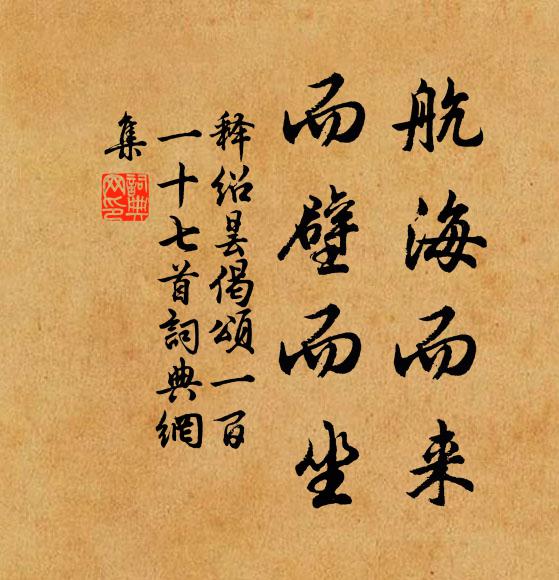 航海而来
而壁而坐
释绍昙偈頌一百
一十七首詞典網
集
詞典網印